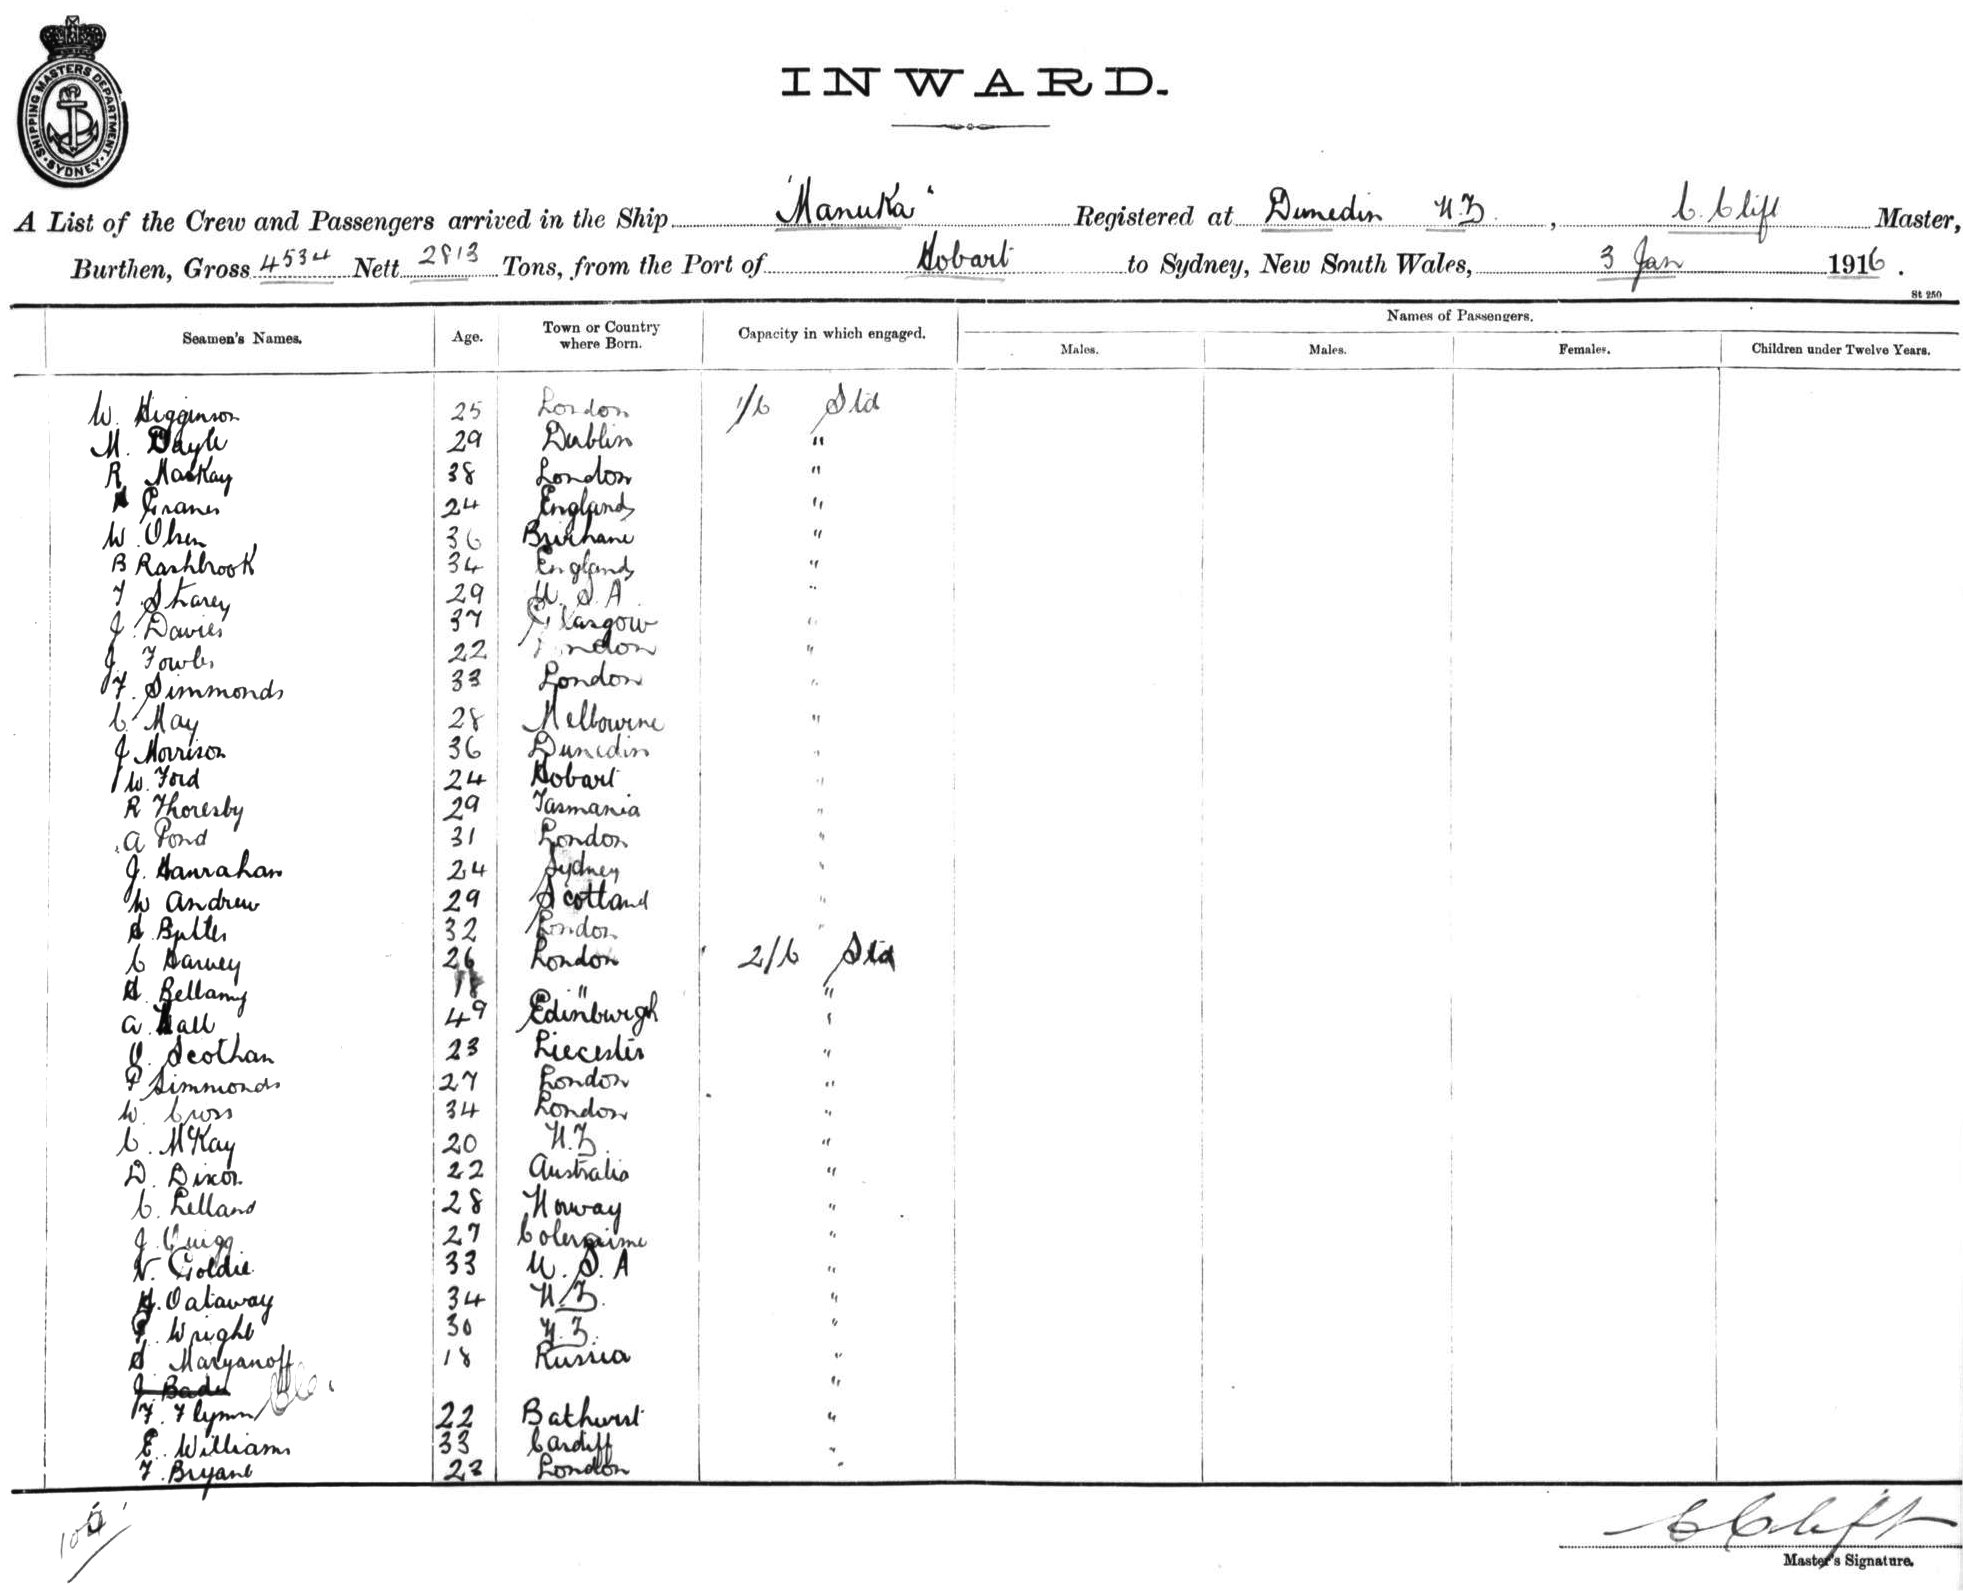 SHIPPING MASTERS DEPARTMENT
SYDNEY
INWARD.
A List of the Crew and Passengers arrived in the Ship "Manuka" Registered at Dunedin N.Z., C. Clift Master,
Burthen, Gross 4534 Nett 2813 Tons, from the Port of Hobart to Sydney, New South Wales, 3 Jan 1916.
St 250
Seamen's Names. Age. Town or Country where Born. Capacity in which engaged. Names of Passengers.
Males. Males. Females. Children under Twelve Years.
W. Higginson 25 London 1/6 Std
M. Doyle 29 Dublin "
R MacKay 38 London "
Cranes 24 England "
W. Olsen 36 Brisbane "
B Rashbrook 34 England "
F. Sharey 29 U.S.A "
J. Davies 37 Glasgow "
J. Fowler 22 London "
F. Simmonds 33 London "
C. May 28 Melbourne "
J Morrison 36 Dunedin "
W. Ford 24 Hobart "
R Thoresby 29 Tasmania "
A Pond 31 London "
J. Hanrahan 24 Sydney "
W Andrew 29 Scotland "
H Butter 32 London "
C Harvey 26 London 2/6 Std
H. Bellamy 18 " "
A. Hall 49 Edinburgh "
O. Scothan 23 Liecester "
F Simmonds 27 London "
W. Cross 34 London "
C. McKay 20 N.Z. "
D. Dixon 22 Australia "
C. Lelland 28 Norway "
J. Quigg 27 Coleraine "
N. Goldie 33 U.S.A "
H. Oataway 34 N.Z. "
F. Wright 30 N.Z. "
S. Maryanoff 18 Russia "
J. Bader "
F. Flynn 22 Bathurst "
E. Williams 33 Cardiff "
F. Bryant 23 London "
C Clift
Master's Signature.